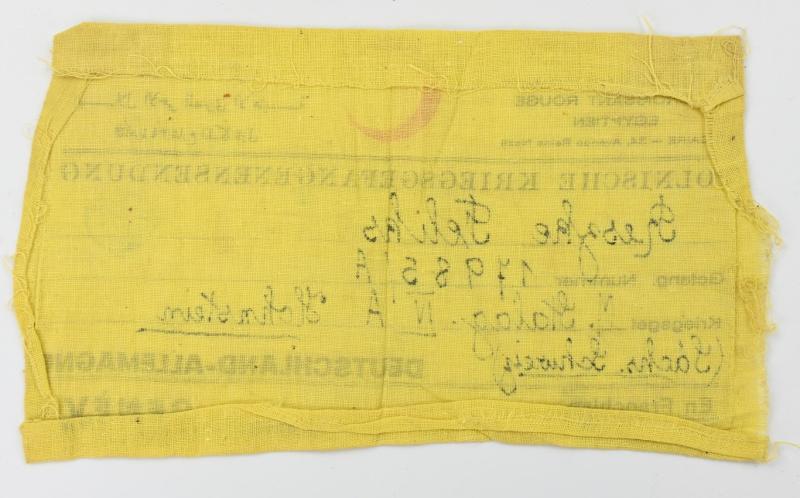 CROISSANT ROUGE
EGYPTIEN
CAIRE — 34, Avenue Reine Nazli
POLNISCHE KRIEGSGEFANGENENSENDUNG
Reszke Feliks
Gefang. Nummer 17985/A
Kriegsgef. Stalag IV A Hohnstein
(Sächs. Schweiz)
DEUTSCHLAND-ALLEMAGNE
En Franchise